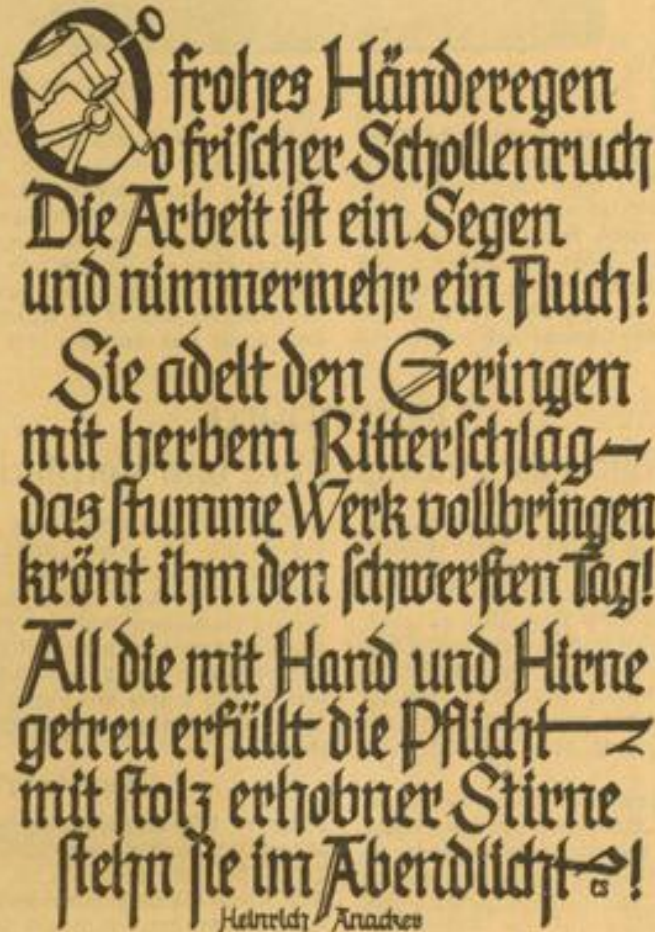 O frohes Händeregen
o frischer Schollenruch
Die Arbeit ist ein Segen
und nimmermehr ein Fluch!
Sie adelt den Geringen
mit herbem Ritterschlag—
das stumme Werk vollbringen
krönt ihm den schwersten Tag!
All die mit Hand und Hirne
getreu erfüllt die Pflicht—
mit stolz erhobner Stirne
stehn sie im Abendlicht!
es
Heinrich Anacker